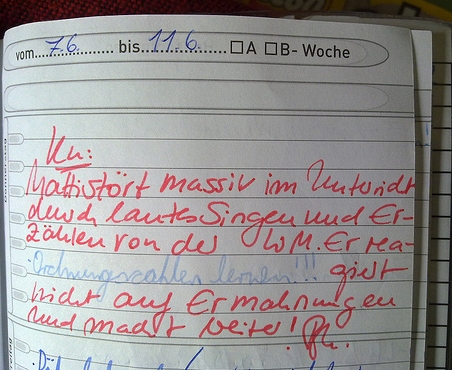 vom 7.6. bis 11.6. A B- Woche
Ku:
Mattis stört massiv im Unterricht
durch lautes Singen und Er-
zählen von der WM. Er rea-
Ordnungszahlen lernen!!! giert
nicht auf Ermahnungen
und macht weiter!